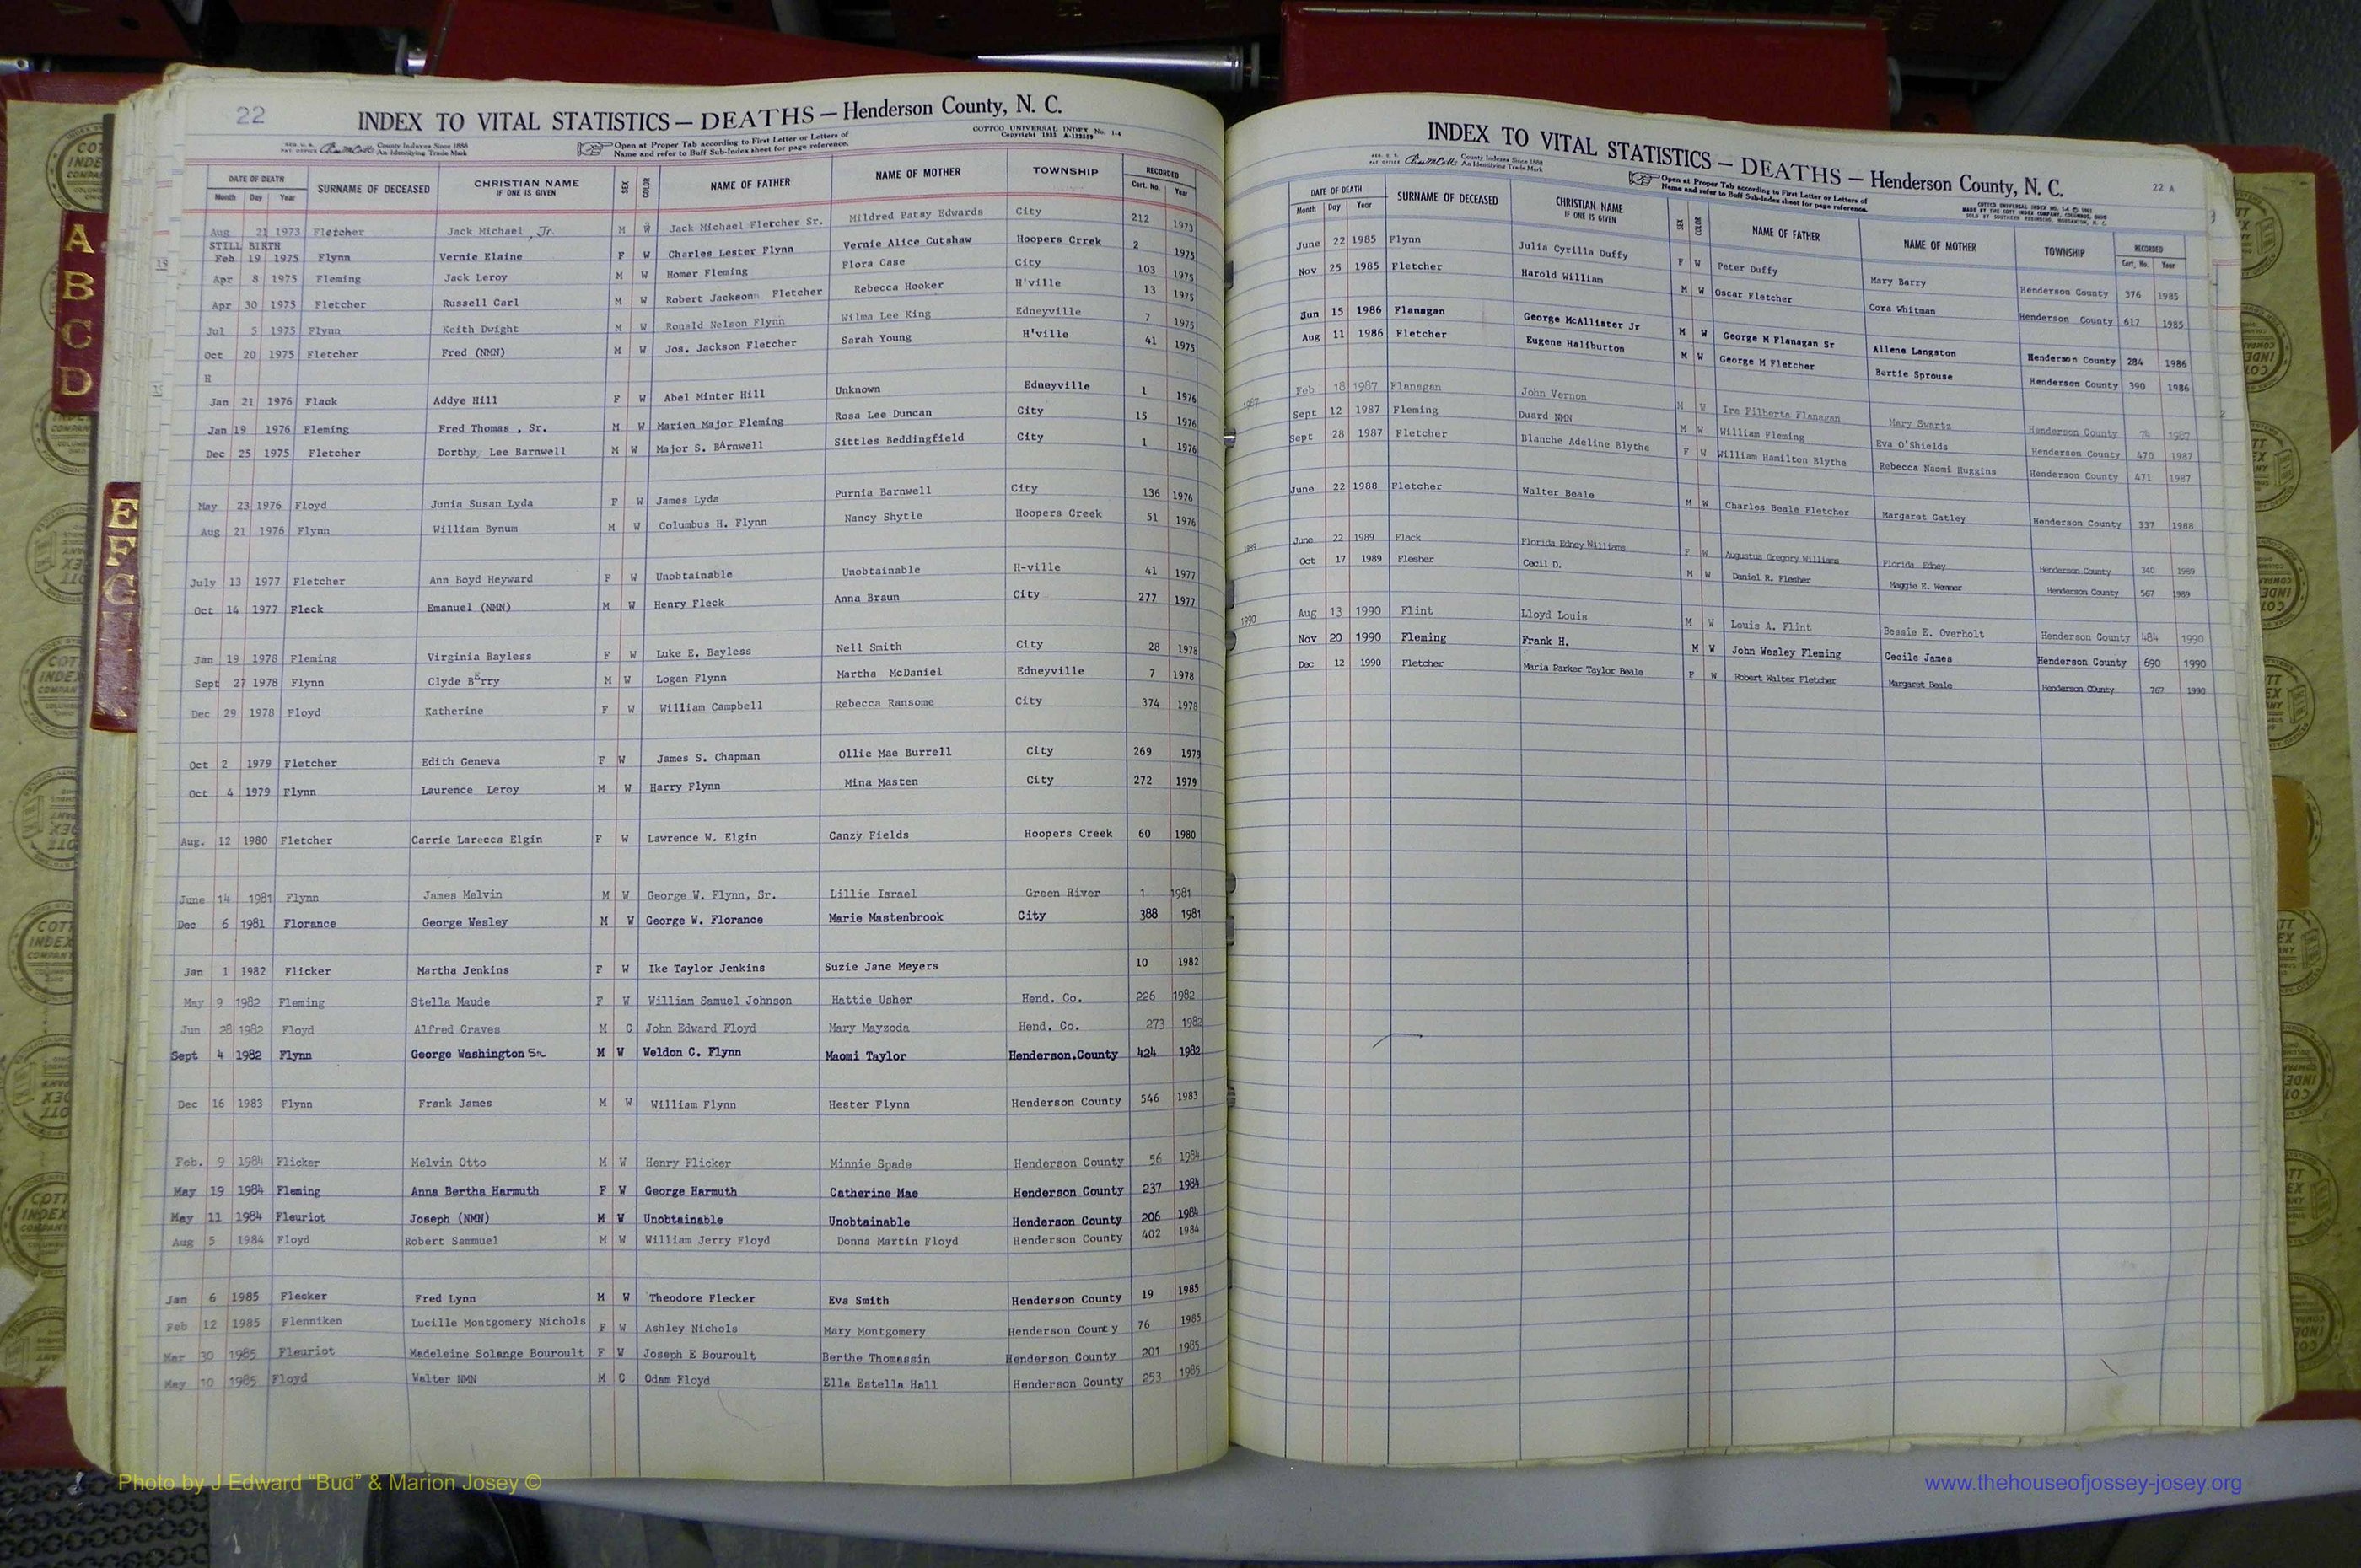 22
INDEX TO VITAL STATISTICS — DEATHS — Henderson County, N. C.
COTTCO UNIVERSAL INDEX No. 1-4
County Indexes Since 1888
An Identifying Trade Mark
Open at Proper Tab according to First Letter or Letters of
Name and refer to Buff Sub-Index sheet for page reference.
DATE OF DEATH SURNAME OF DECEASED CHRISTIAN NAME IF ONE IS GIVEN SEX COLOR NAME OF FATHER NAME OF MOTHER TOWNSHIP RECORDED
Month Day Year Cert. No. Year
Aug 21 1973 Fletcher Jack Michael, Jr. M W Jack Michael Fletcher Sr. Mildred Patsy Edwards City 212 1973
STILL BIRTH
Feb 19 1975 Flynn Vernie Elaine F W Charles Lester Flynn Vernie Alice Cutshaw Hoopers Crrek 2 1975
Apr 8 1975 Fleming Jack Leroy M W Homer Fleming Flora Case City 103 1975
Apr 30 1975 Fletcher Russell Carl M W Robert Jackson Fletcher Rebecca Hooker H'ville 13 1975
Jul 5 1975 Flynn Keith Dwight M W Ronald Nelson Flynn Wilma Lee King Edneyville 7 1975
Oct 20 1975 Fletcher Fred (NMN) M W Jos. Jackson Fletcher Sarah Young H'ville 41 1975
H
Jan 21 1976 Flack Addye Hill F W Abel Minter Hill Unknown Edneyville 1 1976
Jan 19 1976 Fleming Fred Thomas , Sr. M W Marion Major Fleming Rosa Lee Duncan City 15 1976
Dec 25 1975 Fletcher Dorthy Lee Barnwell M W Major S. BArnwell Sittles Beddingfield City 1 1976
May 23 1976 Floyd Junia Susan Lyda F W James Lyda Purnia Barnwell City 136 1976
Aug 21 1976 Flynn William Bynum M W Columbus H. Flynn Nancy Shytle Hoopers Creek 51 1976
July 13 1977 Fletcher Ann Boyd Heyward F W Unobtainable Unobtainable H-ville 41 1977
Oct 14 1977 Fleck Emanuel (NMN) M W Henry Fleck Anna Braun City 277 1977
Jan 19 1978 Fleming Virginia Bayless F W Luke E. Bayless Nell Smith City 28 1978
Sept 27 1978 Flynn Clyde Berry M W Logan Flynn Martha McDaniel Edneyville 7 1978
Dec 29 1978 Floyd Katherine F W William Campbell Rebecca Ransome City 374 1978
Oct 2 1979 Fletcher Edith Geneva F W James S. Chapman Ollie Mae Burrell City 269 1979
Oct 4 1979 Flynn Laurence Leroy M W Harry Flynn Mina Masten City 272 1979
Aug. 12 1980 Fletcher Carrie Larecca Elgin F W Lawrence W. Elgin Canzy Fields Hoopers Creek 60 1980
June 14 1981 Flynn James Melvin M W George W. Flynn, Sr. Lillie Israel Green River 1 1981
Dec 6 1981 Florance George Wesley M W George W. Florance Marie Mastenbrook City 388 1981
Jan 1 1982 Flicker Martha Jenkins F W Ike Taylor Jenkins Suzie Jane Meyers 10 1982
May 9 1982 Fleming Stella Maude F W William Samuel Johnson Hattie Usher Hend. Co. 226 1982
Jun 28 1982 Floyd Alfred Graves M C John Edward Floyd Mary Mayzoda Hend. Co. 273 1982
Sept 4 1982 Flynn George Washington Sr. M W Weldon C. Flynn Maomi Taylor Henderson.County 424 1982
Dec 16 1983 Flynn Frank James M W William Flynn Hester Flynn Henderson County 546 1983
Feb. 9 1984 Flicker Melvin Otto M W Henry Flicker Minnie Spade Henderson County 56 1984
May 19 1984 Fleming Anna Bertha Harmuth F W George Harmuth Catherine Mae Henderson County 237 1984
May 11 1984 Fleuriot Joseph (NMN) M W Unobtainable Unobtainable Henderson County 206 1984
Aug 5 1984 Floyd Robert Sammuel M W William Jerry Floyd Donna Martin Floyd Henderson County 402 1984
Jan 6 1985 Flecker Fred Lynn M W Theodore Flecker Eva Smith Henderson County 19 1985
Feb 12 1985 Flenniken Lucille Montgomery Nichols F W Ashley Nichols Mary Montgomery Henderson County 76 1985
Mar 30 1985 Fleuriot Madeleine Solange Bouroult F W Joseph E Bouroult Berthe Thomassin Henderson County 201 1985
May 10 1985 Floyd Walter NMN M C Odam Floyd Ella Estella Hall Henderson County 253 1985
INDEX TO VITAL STATISTICS — DEATHS — Henderson County, N. C.
22 A
County Indexes Since 1888
An Identifying Trade Mark
Open at Proper Tab according to First Letter or Letters of
Name and refer to Buff Sub-Index sheet for page reference.
DATE OF DEATH SURNAME OF DECEASED CHRISTIAN NAME IF ONE IS GIVEN SEX COLOR NAME OF FATHER NAME OF MOTHER TOWNSHIP RECORDED
Month Day Year Cert. No. Year
June 22 1985 Flynn Julia Cyrilla Duffy F W Peter Duffy Mary Barry Henderson County 376 1985
Nov 25 1985 Fletcher Harold William M W Oscar Fletcher Cora Whitman Henderson County 617 1985
Jun 15 1986 Flanagan George McAllister Jr M W George M Flanagan Sr Allene Langston Henderson County 284 1986
Aug 11 1986 Fletcher Eugene Haliburton M W George M Fletcher Bertie Sprouse Henderson County 390 1986
1987 Feb 18 1987 Flanagan John Vernon M W Ira Filberta Flanagan Mary Swartz Henderson County 74 1987
Sept 12 1987 Fleming Duard NMN M W William Fleming Eva O'Shields Henderson County 470 1987
Sept 28 1987 Fletcher Blanche Adeline Blythe F W William Hamilton Blythe Rebecca Naomi Huggins Henderson County 471 1987
June 22 1988 Fletcher Walter Beale M W Charles Beale Fletcher Margaret Gatley Henderson County 337 1988
1989 June 22 1989 Flack Florida Edney Williams F W Augustus Gregory Williams Florida Edney Henderson County 340 1989
Oct 17 1989 Flesher Cecil D. M W Daniel R. Flesher Maggie E. Wenner Henderson County 567 1989
1990 Aug 13 1990 Flint Lloyd Louis M W Louis A. Flint Bessie E. Overholt Henderson County 484 1990
Nov 20 1990 Fleming Frank H. M W John Wesley Fleming Cecile James Henderson County 690 1990
Dec 12 1990 Fletcher Maria Parker Taylor Beale F W Robert Walter Fletcher Margaret Beale Henderson COunty 767 1990
A
B
C
D
E
F
G
Photo by J Edward “Bud” & Marion Josey ©
www.thehouseofjossey-josey.org